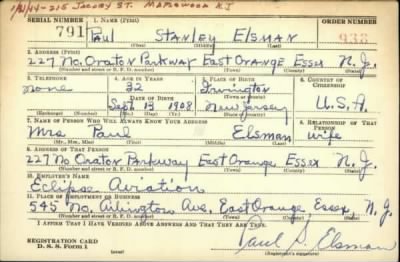 1/21/44-215 Jacoby St. Maplewood N.J
SERIAL NUMBER 1. NAME (Print) ORDER NUMBER
791 Paul Stanley Elsman 933
(First) (Middle) (Last)
2. ADDRESS (Print)
227 No. Oraton Parkway East Orange Essex N.J.
(Number and street or R. F. D. number) (Town) (County) (State)
3. TELEPHONE 4. AGE IN YEARS 5. PLACE OF BIRTH 6. COUNTRY OF CITIZENSHIP
none 32 Irvington
DATE OF BIRTH (Town or county)
Sept. 13 1908 New Jersey U.S.A.
(Exchange) (Number) (Mo.) (Day) (Yr.) (State or country)
7. NAME OF PERSON WHO WILL ALWAYS KNOW YOUR ADDRESS 8. RELATIONSHIP OF THAT PERSON
Mrs Paul Elsman wife
(Mr., Mrs., Miss) (First) (Middle) (Last)
9. ADDRESS OF THAT PERSON
227 No Oraton Parkway East Orange, Essex N.J.
(Number and street or R. F. D. number) (Town) (County) (State)
10. EMPLOYER'S NAME
Eclipse Aviation
11. PLACE OF EMPLOYMENT OR BUSINESS
545 No. Arlington Ave. East Orange, Essex, N.J.
(Number and street or R. F. D. number) (Town) (County) (State)
I AFFIRM THAT I HAVE VERIFIED ABOVE ANSWERS AND THAT THEY ARE TRUE.
REGISTRATION CARD
D. S. S. Form 1 Paul S. Elsman